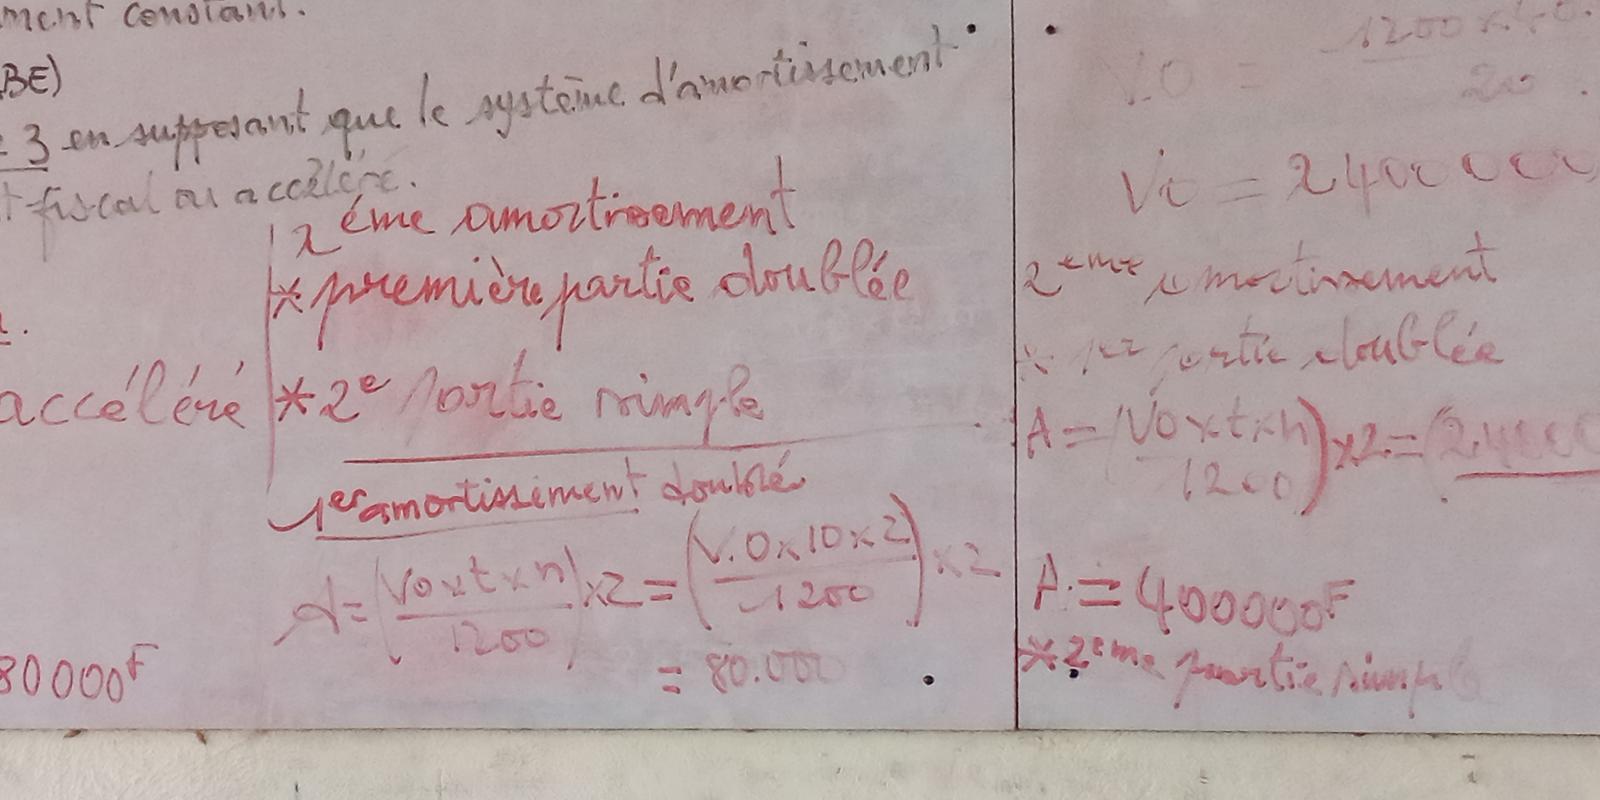 ment constant.
BE)
3 en supposant que le système d'amortissement
t fiscal ou accéléré.
2éme amortissement
* première partie doublée
accéléré * 2e partie simple
1er amortissement doublé
A = (V0 x t x n / 1200) x 2 = (V.0 x 10 x 2 / 1200) x 2
= 80.000
80000F
V.0 = 1200 x 40. / 20
V0 = 2400000
2eme amortissement
* 1er partie doublée
A = (V0 x t x n / 1200) x 2 = (2400
A = 400000F
* 2eme partie simple